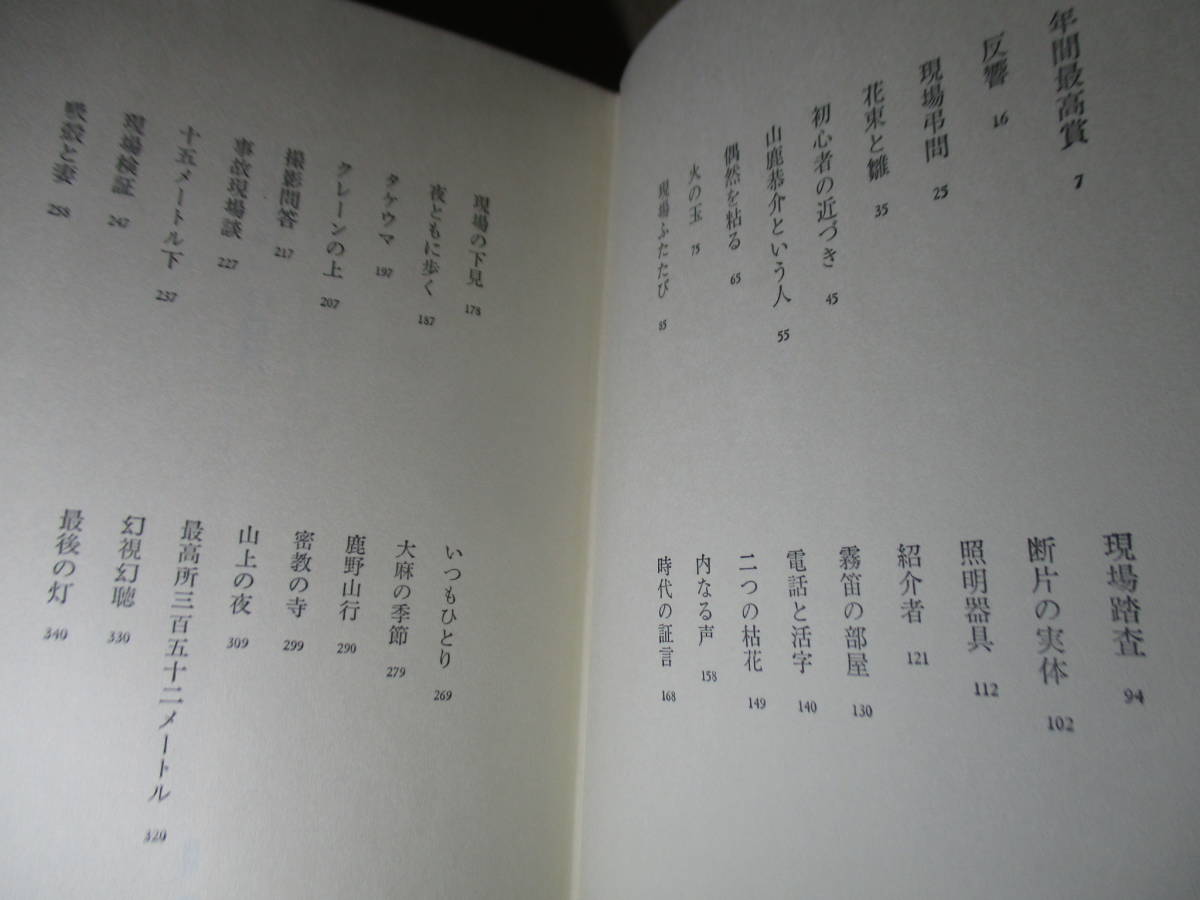 年間最高賞 7
反響 16
現場弔問 25
花束と雛 35
初心者の近づき 45
山鹿恭介という人 55
偶然を粘る 65
火の玉 75
現場ふたたび 85
現場踏査 94
断片の実体 102
照明器具 112
紹介者 121
霧笛の部屋 130
電話と活字 140
二つの枯花 149
内なる声 158
時代の証言 168
現場の下見 178
夜ともに歩く 187
タケウマ 197
クレーンの上 207
撮影問答 217
事故現場談 227
十五メートル下 237
現場検証 247
吸殻と妻 258
いつもひとり 269
大麻の季節 279
鹿野山行 290
密教の寺 299
山上の夜 309
最高所三百五十二メートル 320
幻視幻聴 330
最後の灯 340